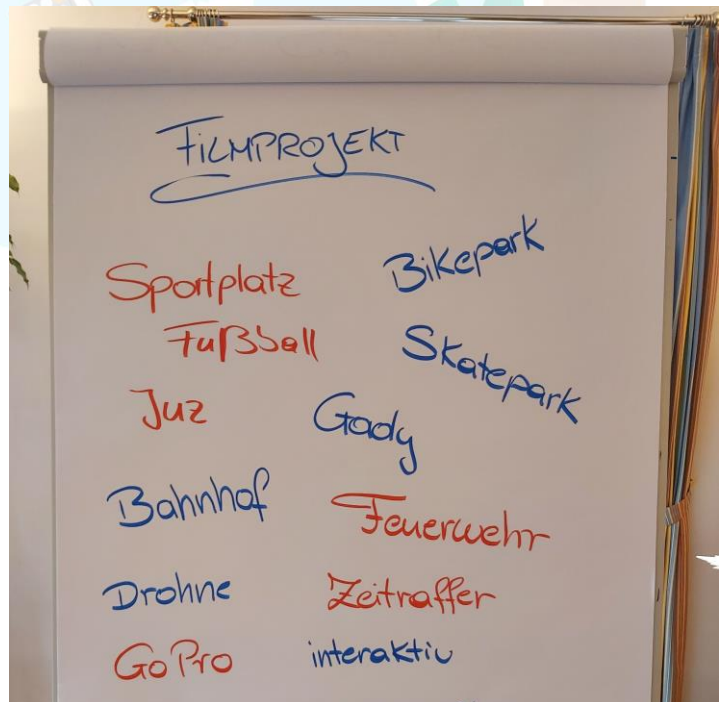 FILMPROJEKT
Sportplatz
Bikepark
Fußball
Skatepark
Juz
Gady
Bahnhof
Feuerwehr
Drohne
Zeitraffer
GoPro
interaktiv